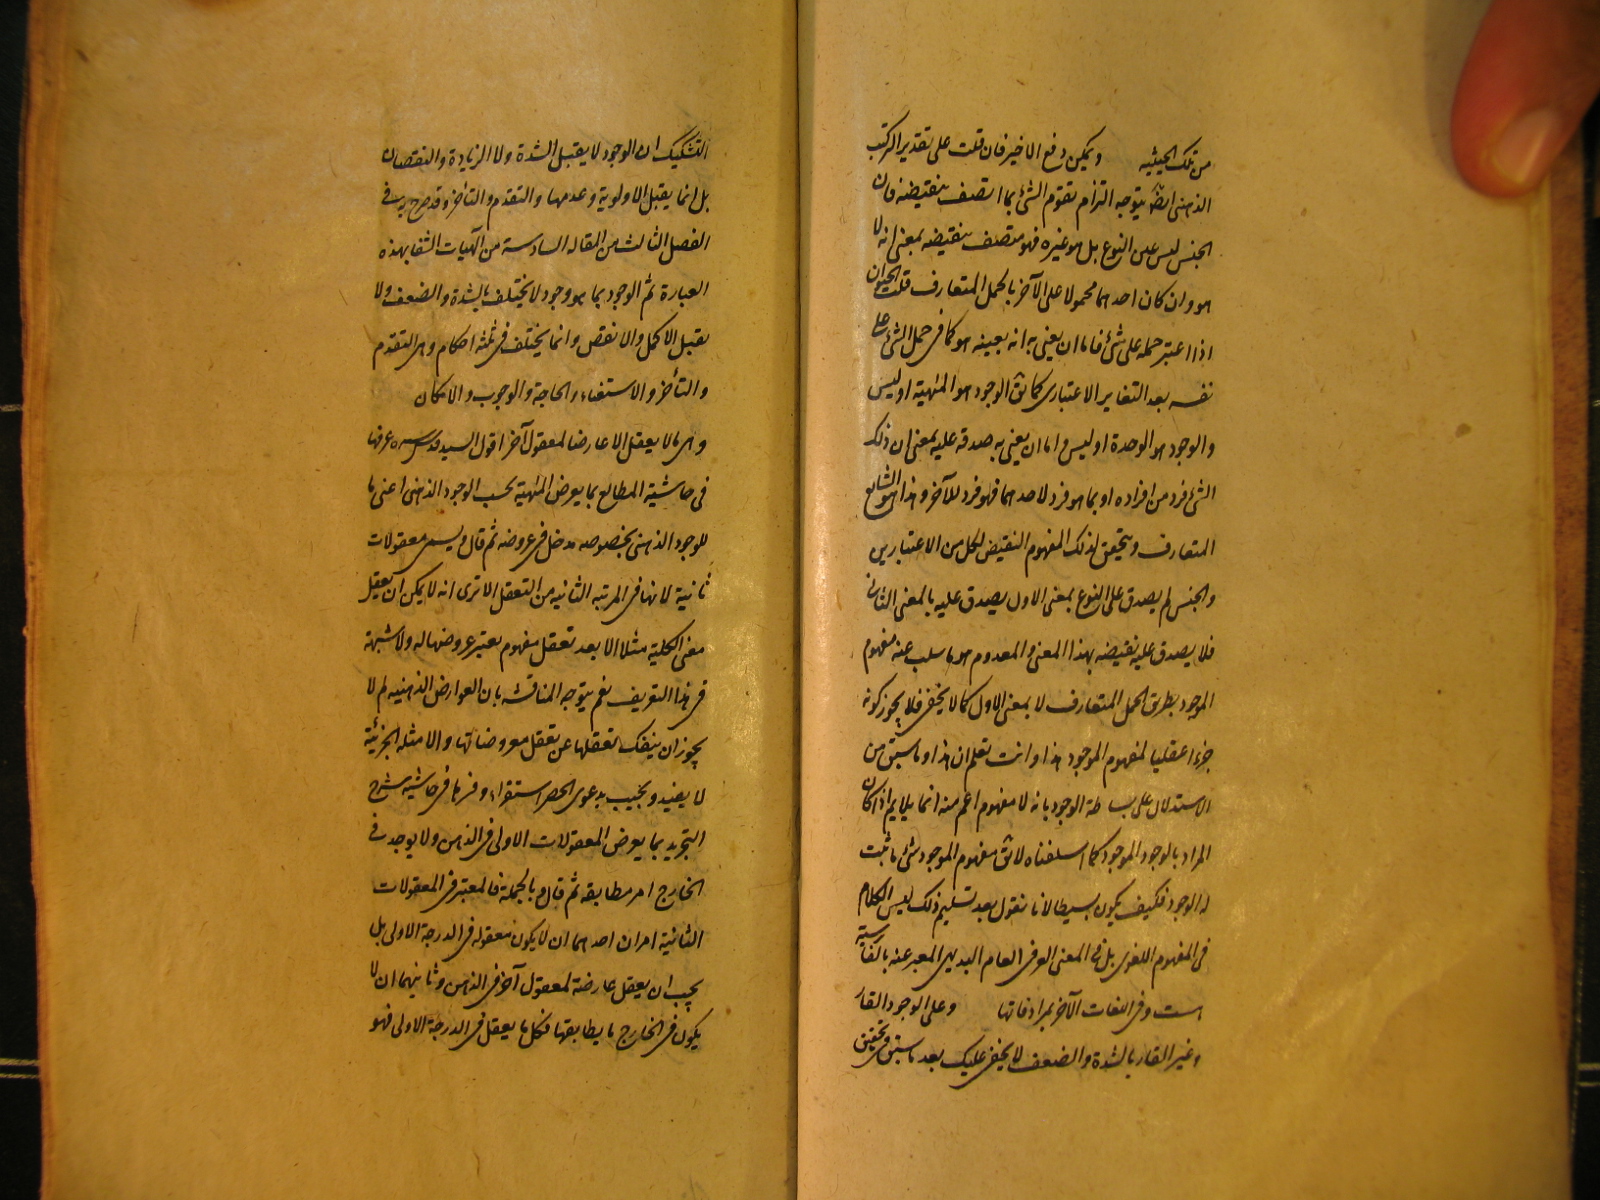 من تلك الحيثيه ويمكن دفع الاخير فان قلت على تقدير التركب
الذهنى ايضا يتوجه التزام تقوم الشئ بما اتصف بنقيضه فان
الجنس ليس عين النوع بل هو غيره فهو متصف بنقيضه بمعنى انه لا
هو وان كان احدهما محمولا على الآخر بالحمل المتعارف قلت الحيوان
اذا اعتبر حمله على شئ فاما ان يعنى به انه بعينه هو كما فى حمل الشئ على
نفسه بعد التغاير الاعتبارى كما يق الوجود هو المهية او ليس
والوجود هو الوحدة او ليس واما ان يعنى به صدقه عليه بمعنى ان ذلك
الشئ فرد من افراده او بما هو فرد لاحدهما فهو فرد للآخر وهذا هو الشايع
المتعارف ويتحقق لذلك المفهوم النقيض لكل من الاعتبارين
والجنس لم يصدق على النوع بمعنى الاول يصدق عليه بالمعنى الثانى
فلا يصدق عليه نقيضه بهذا المعنى والمعدوم هو ما سلب عنه مفهوم
الموجود بطريق الحمل المتعارف لا بمعنى الاول كما لا يخفى فلا يجوز كونه
جزءا عقليا لمفهوم الموجود هذا وانت تعلم ان هذا وما سبق من
الاستدلال على بساطة الوجود بانه لا مفهوم اعم منه انما يلايم اذا كان
المراد بالوجود الموجود كما اسلفناه لا يق مفهوم الموجود شئ ما ثبت
له الوجود فكيف يكون بسيطا لانا نقول بعد تسليم ذلك ليس الكلام
فى المفهوم اللغوى بل فى المعنى العرفى العام البديهى المعبر عنه بالفارسية
هست وفى اللغات الآخر بمرادفاتها وعلى الوجود القار
وغير القار بالشدة والضعف لا يخفى عليك بعد ما سبق فى تحقيق
التشكيك ان الوجود لا يقبل الشدة ولا الزيادة والنقصان
بل انما يقبل الاولوية وعدمها والتقدم والتأخر وقد صرح به فى
الفصل الثالث من المقاله السادسة من الهيات الشفا بهذه
العبارة ثم الوجود بما هو وجود لا يختلف بالشدة والضعف ولا
يقبل الاكمل والانقص وانما يختلف فى ثلثه احكام وهى التقدم
والتأخر والاستغناء والحاجة والوجوب والامكان
وهى ما لا يعقل الا عارضا لمعقول آخر اقول السيد قدس سره عرفها
فى حاشية المطالع بما يعرض المهية بحسب الوجود الذهنى اعنى ما
للوجود الذهنى بخصوصه مدخل فى عروضه ثم قال ويسمى معقولات
ثانية لانها فى المرتبه الثانيه من التعقل الا ترى انه لا يمكن ان يعقل
معنى الكلية مثلا الا بعد تعقل مفهوم يعتبر عروضها له ولا شبهة
فى هذا التعريف نعم يتوجه المناقشه بان العوارض الذهنيه لم لا
يجوز ان ينفك تعقلها عن تعقل معروضاتها والامثله الجزئية
لا يفيد ويجيب بدعوى الحصر استقراء وفسرها فى حاشيه شرح
التجريد بما يعرض المعقولات الاولى فى الذهن ولا يوجد فى
الخارج امر مطابقه ثم قال وبالجملة فالمعتبر فى المعقولات
الثانية امران احدهما ان لا يكون معقوله فى الدرجة الاولى بل
يجب ان يعقل عارضة لمعقول آخر فى الذهن وثانيهما ان لا
يكون فى الخارج ما يطابقها فكل ما يعقل فى الدرجة الاولى فهو